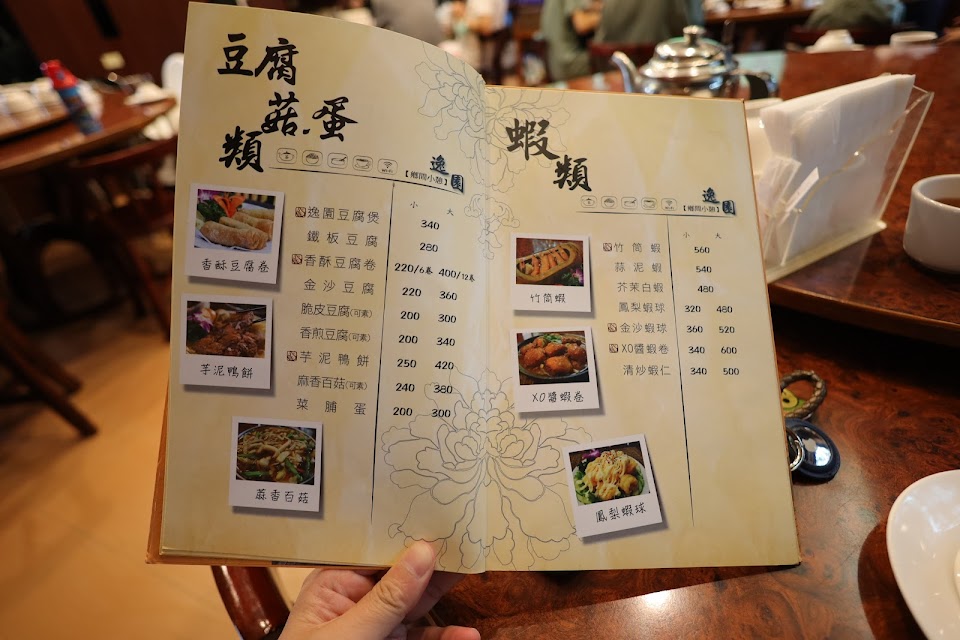 豆腐
菇.蛋
類
逸園
【鄉間小廚】
小 大
逸園豆腐煲 340
鐵板豆腐 280
香酥豆腐卷 220/6卷 400/12卷
金沙豆腐 220 360
脆皮豆腐(可素) 200 300
香煎豆腐(可素) 200 340
芋泥鴨餅 250 420
麻香百菇(可素) 240 380
菜脯蛋 200 300
香酥豆腐卷
芋泥鴨餅
蔴香百菇
蝦
類
逸園
【鄉間小廚】
小 大
竹筒蝦 560
蒜泥蝦 540
芥茉白蝦 480
鳳梨蝦球 320 480
金沙蝦球 360 520
XO醬蝦卷 340 600
清炒蝦仁 340 500
竹筒蝦
XO醬蝦卷
鳳梨蝦球